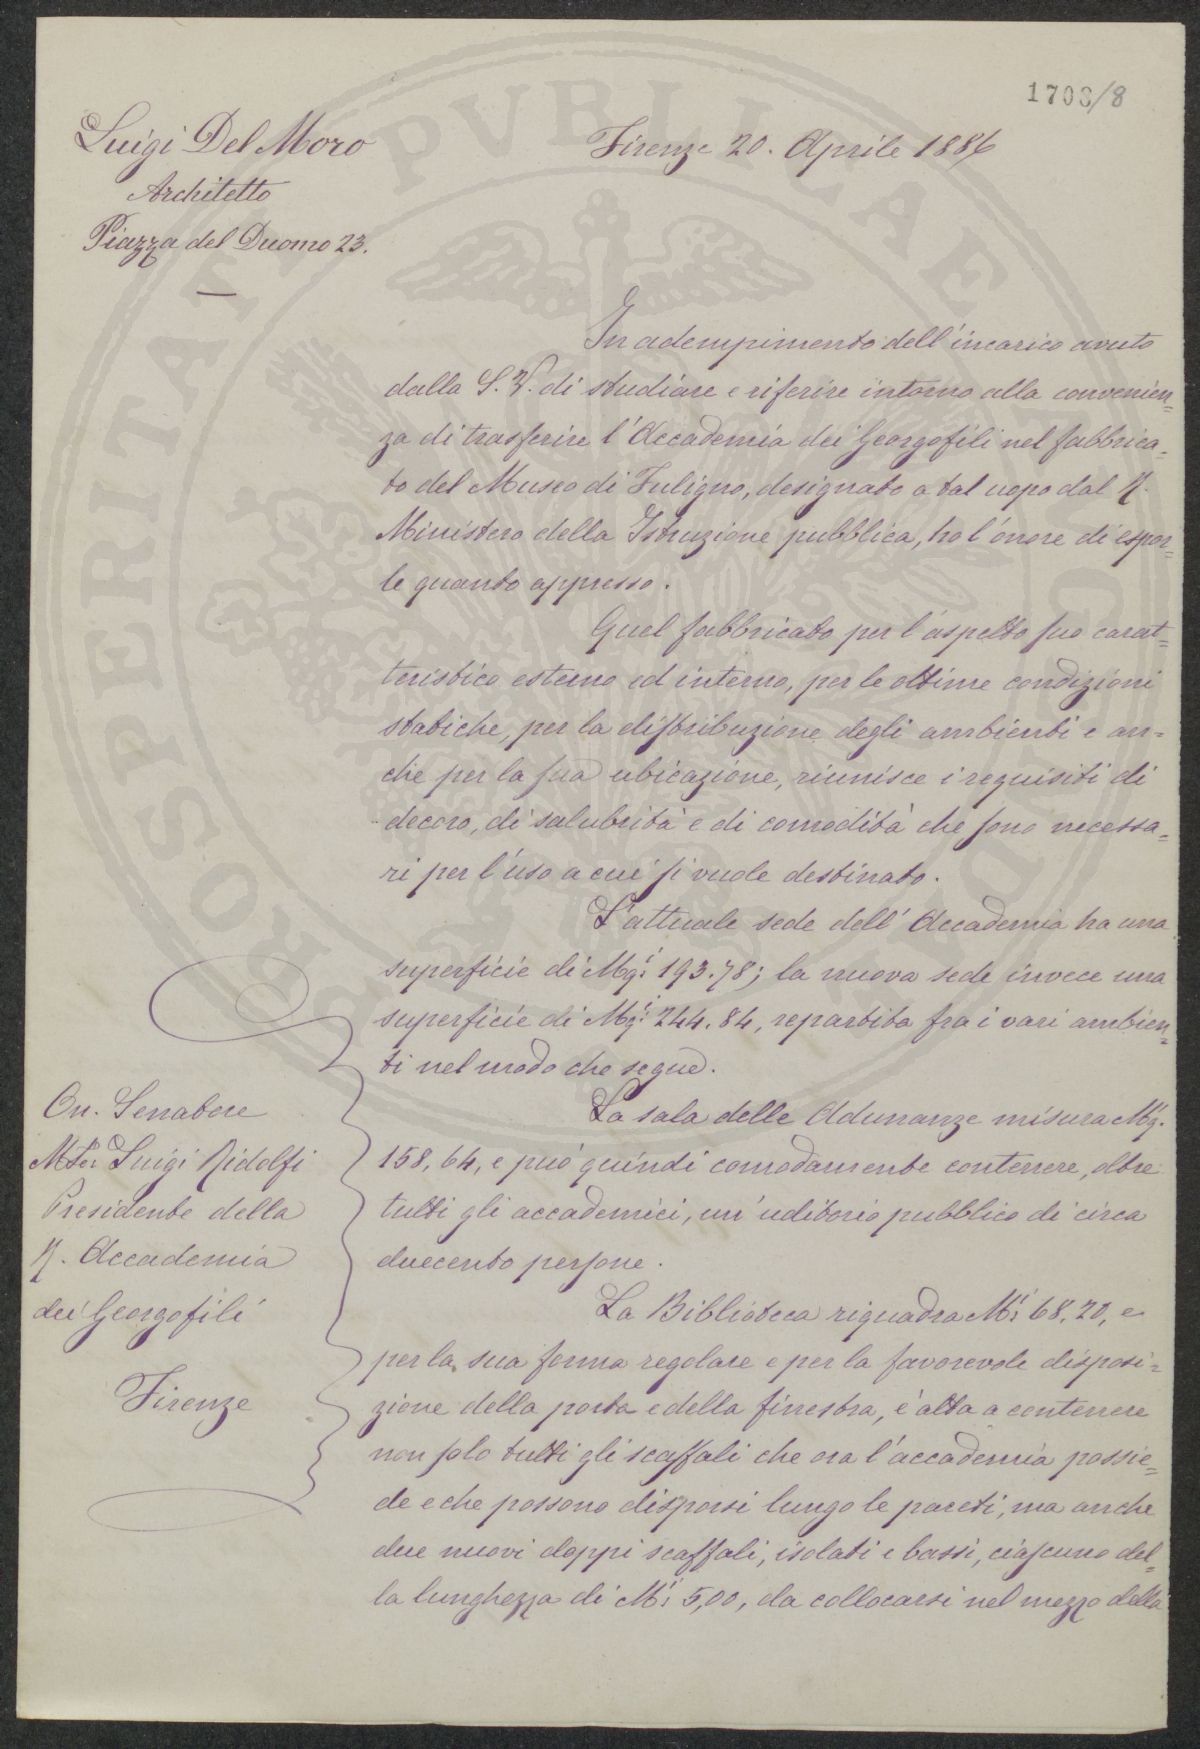 1703/8
Luigi Del Moro
Architetto
Piazza del Duomo 23.
Firenze 20. Aprile 1886
In adempimento dell'incarico avuto
dalla S. V. di studiare e riferire intorno alla convenien=
za di trasferire l'Accademia dei Georgofili nel fabbrica=
to del Museo di Fuligno, designato a tal uopo dal R.
Ministero della Istruzione pubblica, ho l'onore di espor=
le quanto appresso.
Quel fabbricato per l'aspetto suo carat=
teristico esterno ed interno, per le ottime condizioni
statiche, per la distribuzione degli ambienti e an=
che per la sua ubicazione, riunisce i requisiti di
decoro, di salubrità e di comodità che sono necessa=
ri per l'uso a cui si vuole destinato.
L'attuale sede dell'Accademia ha una
superficie di Mq.i 193.78; la nuova sede invece una
superficie di Mq.i 244.84, repartita fra i vari ambien=
ti nel modo che segue.
La sala delle Adunanze misura Mq.i
158,64, e può quindi comodamente contenere, oltre
tutti gli accademici, un'uditorio pubblico di circa
duecento persone.
La Biblioteca riquadra M.i 68,20, e
per la sua forma regolare e per la favorevole disposi=
zione della porta e della finestra, è atta a contenere
non solo tutti gli scaffali che ora l'accademia possie=
de e che possono disporsi lungo le pareti, ma anche
due nuovi doppi scaffali, isolati e bassi, ciascuno del=
la lunghezza di M.i 5,00, da collocarsi nel mezzo della
On. Senatore
Luigi Ridolfi
Presidente della
R. Accademia
dei Georgofili
Firenze
PROSPERITATI PVBLICAE